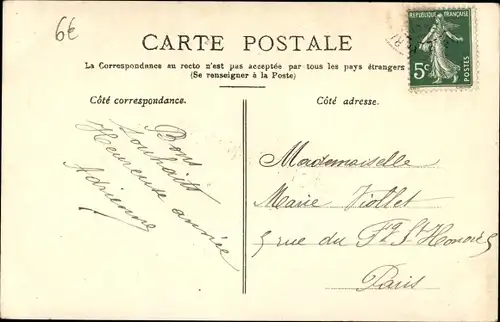 6€
CARTE POSTALE
La Correspondance au recto n'est pas acceptée par tous les pays étrangers
(Se renseigner à la Poste)
RÉPUBLIQUE FRANÇAISE
5c
POSTES
Côté correspondance.
Côté adresse.
Bons
souhaits
Heureuse année
Adrienne
Mademoiselle
Marie Viollet
5 rue du Fg St Honoré
Paris